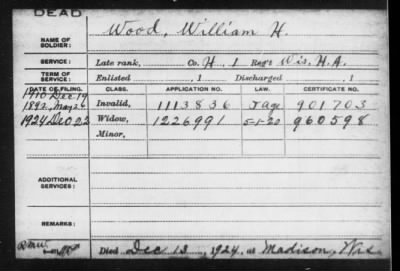 DEAD
NAME OF SOLDIER: Wood, William H.
SERVICE: Late rank, Co. H. 1 Reg't Wis. H.A.
TERM OF SERVICE: Enlisted , 1 Discharged , 1
DATE OF FILING. CLASS. APPLICATION NO. LAW. CERTIFICATE NO.
1910 Dec 19
1892, May 26 Invalid, 1113836 J age 901703
1924 Dec 22 Widow, 1226991 5-1-20 960598
Minor,
ADDITIONAL SERVICES:
REMARKS:
Died Dec 13, 1924, at Madison, Wis